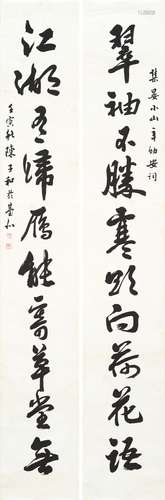 集晏小山辛幼安词
翠袖不勝寒欲向荷花語
江湖有歸雁能寄草堂無
壬寅秋陳子和於墨水